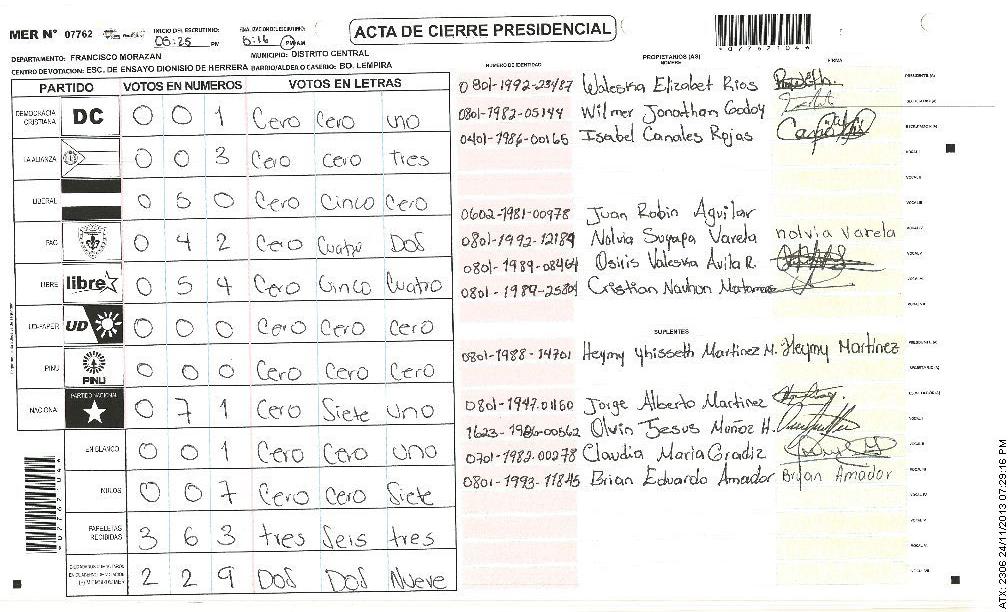 ACTA DE CIERRE PRESIDENCIAL
MER N° 07762 INICIO DEL ESCRUTINIO: 05:25 PM 6:16 PM AM
DEPARTAMENTO: FRANCISCO MORAZAN MUNICIPIO: DISTRITO CENTRAL
CENTRO DE VOTACION: ESC. DE ENSAYO DIONISIO DE HERRERA BARRIO/ALDEA O CASERIO: BO. LEMPIRA
PARTIDO VOTOS EN NUMEROS VOTOS EN LETRAS
DEMOCRACIA CRISTIANA DC 0 0 1 Cero Cero uno
LA ALIANZA 0 0 3 Cero Cero tres
LIBERAL 0 5 0 Cero Cinco Cero
PAC 0 4 2 Cero Cuatro Dos
LIBRE libre 0 5 4 Cero Cinco Cuatro
UD-FAPER UD 0 0 0 Cero Cero Cero
PINU PINU 0 0 0 Cero Cero Cero
NACIONAL PARTIDO NACIONAL 0 7 1 Cero Siete uno
EN BLANCO 0 0 1 Cero Cero uno
NULOS 0 0 7 Cero Cero Siete
PAPELETAS RECIBIDAS 3 6 3 tres Seis tres
2 2 9 Dos Dos Nueve
NUMERO DE IDENTIDAD PROPIETARIOS (AS) NOMBRE FIRMA
0801-1992-23487 Waleska Elizabet Rios
0801-1982-05144 Wilmer Jonathan Godoy
0401-1986-00165 Isabel Canales Rojas
0602-1981-00978 Juan Robin Aguilar
0801-1992-12184 Nolvia Suyapa Varela nolvia Varela
0801-1989-08464 Osiris Valeska Avila R.
0801-1989-25804 Cristian Nauhun Matamoros
SUPLENTES
0801-1988-14701 Heymy Yhisseth Martinez M. Heymy Martinez
0801-1947-01160 Jorge Alberto Martinez
1623-1986-00562 Olvin Jesus Muñoz H.
0701-1982-00278 Claudia Maria Gradiz
0801-1993-11845 Brian Eduardo Amador Bryan Amador
ATX: 2306 24/11/2013 07:29:16 PM